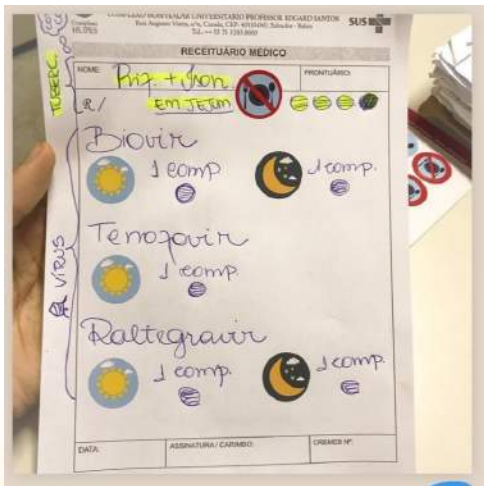 COMPLEXO HOSPITALAR UNIVERSITÁRIO PROFESSOR EDGARD SANTOS
Rua Augusto Viana, s/n, Canela, CEP: 40110-060, Salvador - Bahia
HUPES
SUS
RECEITUÁRIO MÉDICO
NOME:
PRONTUÁRIO:
TUBERC.
R/
EM JEJUM
VÍRUS
Biovir
1 comp.
1 comp.
Tenofovir
1 comp.
Raltegravir
1 comp.
1 comp.
DATA:
ASSINATURA / CARIMBO:
CREMEB Nº: